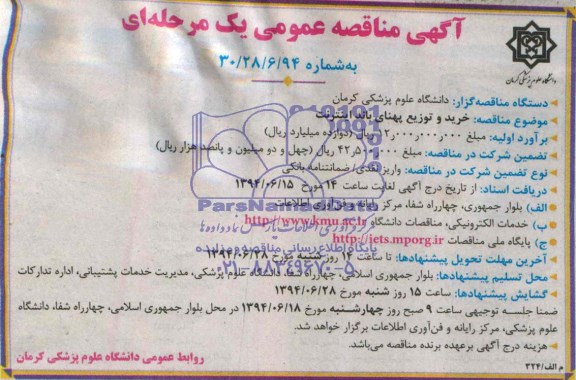 آگهی مناقصه عمومی یک مرحله‌ای
به‌شماره ۳۰/۲۸/۶/۹۴
دانشگاه علوم پزشکی کرمان
دستگاه مناقصه‌گزار: دانشگاه علوم پزشکی کرمان
موضوع مناقصه: خرید و توزیع پهنای باند اینترنت
برآورد اولیه: مبلغ ۱۲٫۰۰۰٫۰۰۰٫۰۰۰ ریال (دوازده میلیارد ریال)
تضمین شرکت در مناقصه: مبلغ ۴۲٫۵۰۰٫۰۰۰ ریال (چهل و دو میلیون و پانصد هزار ریال)
نوع تضمین شرکت در مناقصه: واریز نقدی/ ضمانتنامه بانکی
دریافت اسناد: از تاریخ درج آگهی لغایت ساعت ۱۴ مورخ ۱۳۹۴/۰۶/۱۵
الف) بلوار جمهوری، چهارراه شفا، مرکز رایانه و فن‌آوری اطلاعات
ب) خدمات الکترونیکی، مناقصات دانشگاه http://www.kmu.ac.ir
ج) پایگاه ملی مناقصات http://iets.mporg.ir
آخرین مهلت تحویل پیشنهادها: تا ساعت ۱۴ روز شنبه مورخ ۱۳۹۴/۰۶/۲۸
محل تسلیم پیشنهادها: بلوار جمهوری اسلامی، چهارراه شفا، دانشگاه علوم پزشکی، مدیریت خدمات پشتیبانی، اداره تدارکات
گشایش پیشنهادها: ساعت ۱۵ روز شنبه مورخ ۱۳۹۴/۰۶/۲۸
ضمنا جلسه توجیهی ساعت ۹ صبح روز چهارشنبه مورخ ۱۳۹۴/۰۶/۱۸ در محل بلوار جمهوری اسلامی، چهارراه شفا، دانشگاه
علوم پزشکی، مرکز رایانه و فن‌آوری اطلاعات برگزار خواهد شد.
هزینه درج آگهی برعهده برنده مناقصه می‌باشد.
روابط عمومی دانشگاه علوم پزشکی کرمان
م الف/۳۲۴
ParsNamadData
پایگاه اطلاع رسانی مناقصه و مزایده
۰۲۱-۸۸۳۴۹۶۷۰-۵